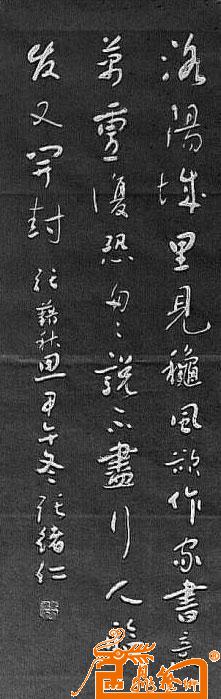 洛陽城里見龝風欲作家書意
萬重復恐匆々說不盡行人臨
发又開封 張藉秋思甲午冬 張緒仁